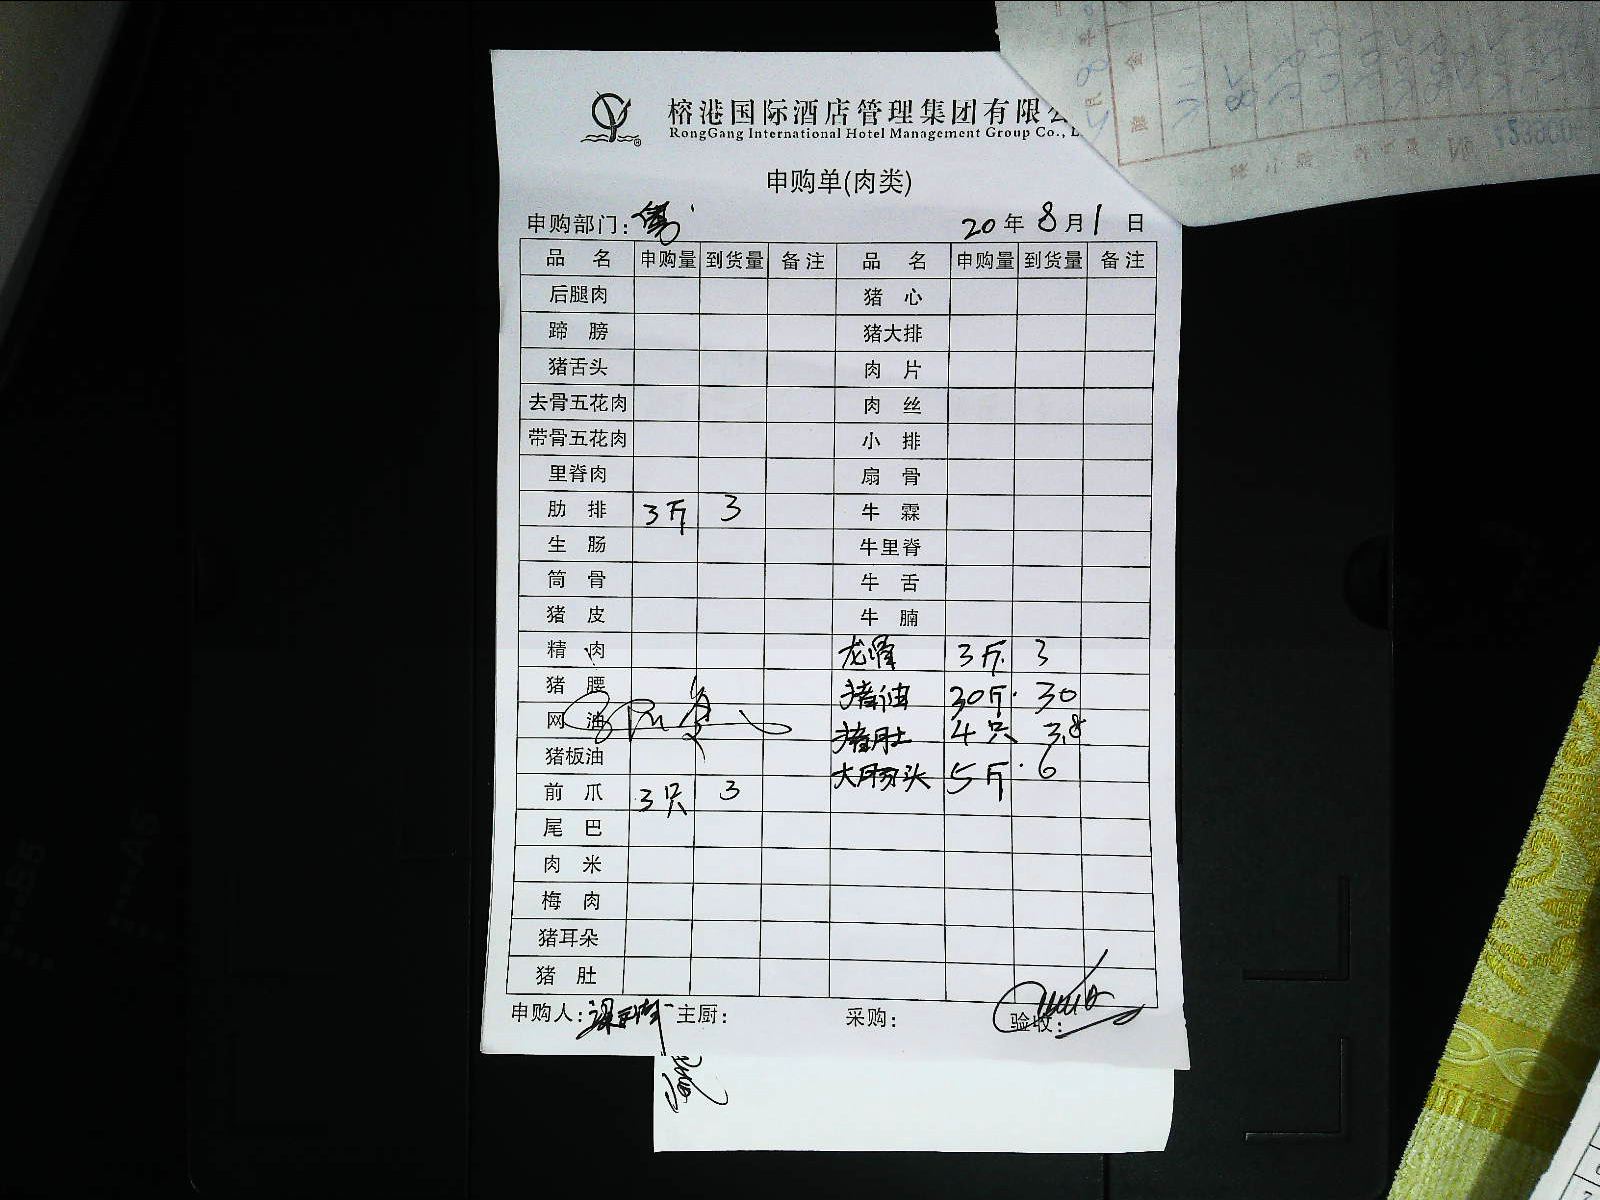 榕港国际酒店管理集团有限
RongGang International Hotel Management Group Co.,
申购单(肉类)
申购部门: 20年8月1日
品名 申购量 到货量 备注 品名 申购量 到货量 备注
后腿肉 猪心
蹄膀 猪大排
猪舌头 肉片
去骨五花肉 肉丝
带骨五花肉 小排
里脊肉 扇骨
肋排 3斤 3 牛霖
生肠 牛里脊
筒骨 牛舌
猪皮 牛腩
精肉 龙骨 3斤 3
猪腰 猪油 30斤 30
网油 猪肚 4只 3.8
猪板油 大肠头 5斤 6
前爪 3只 3
尾巴
肉米
梅肉
猪耳朵
猪肚
申购人: 主厨: 采购: 验收: